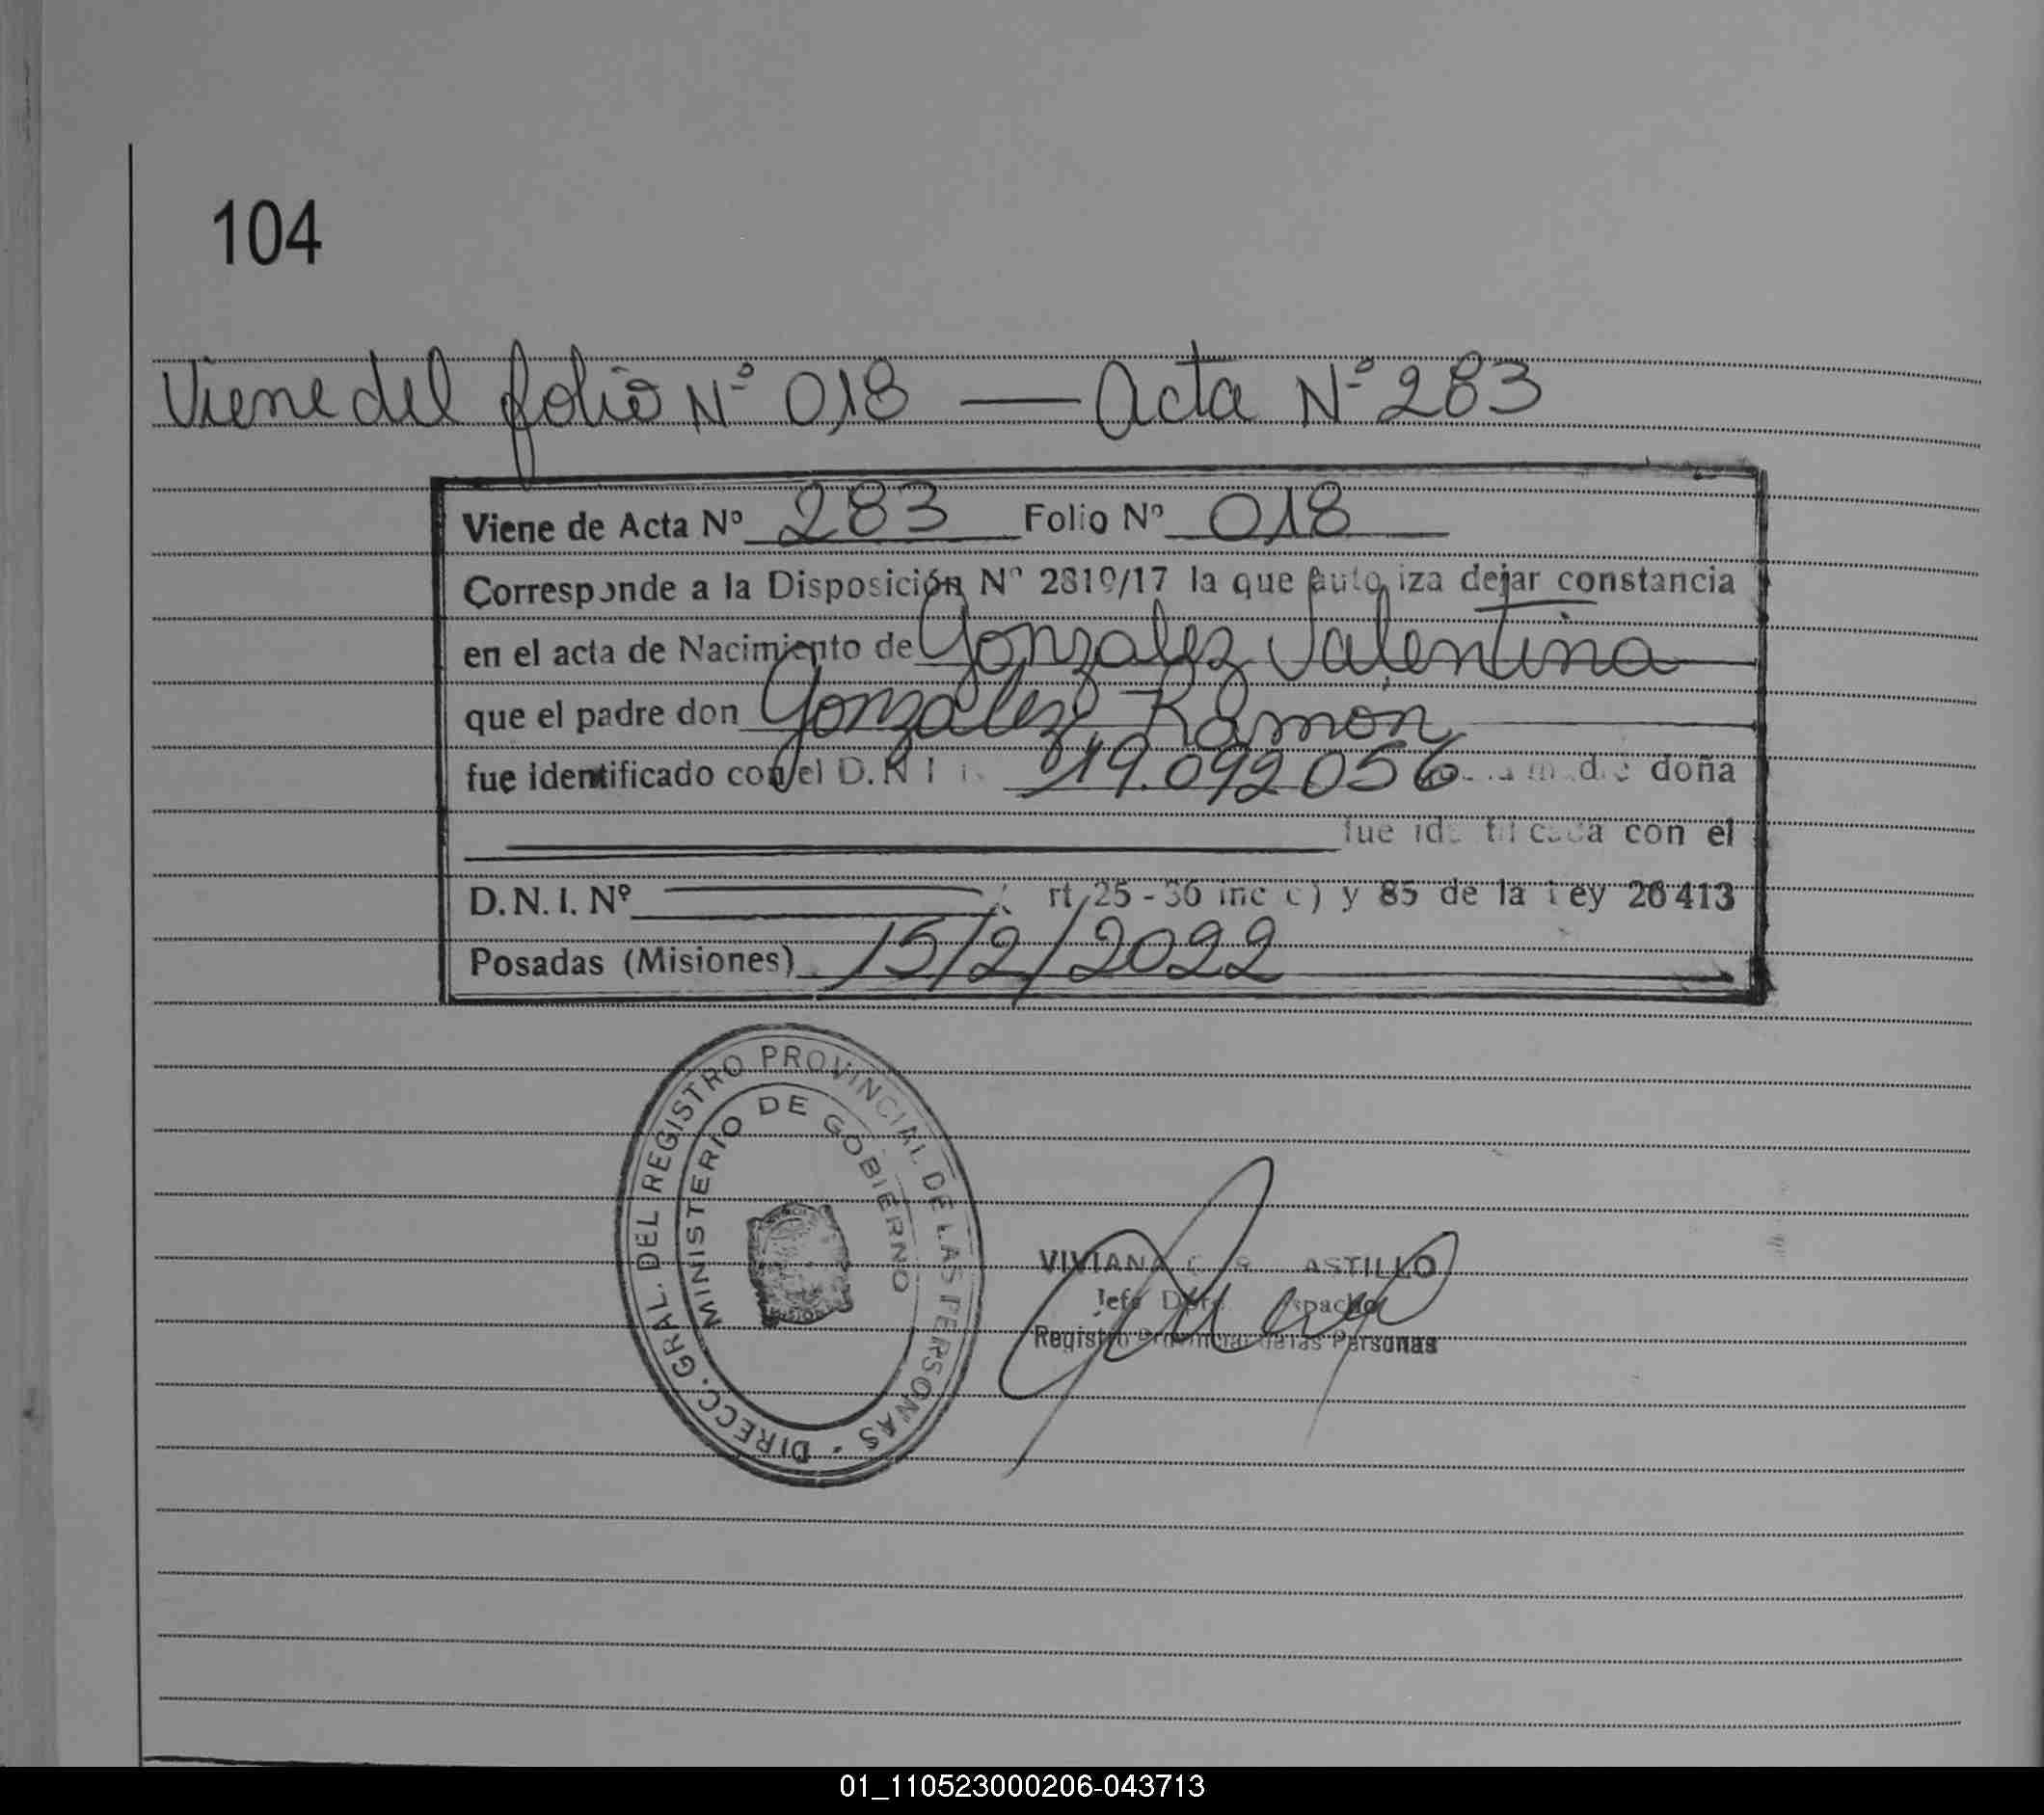 104
Viene del folio Nº 018 — Acta Nº 283
Viene de Acta Nº 283 Folio Nº 018
Corresponde a la Disposición Nº 2819/17 la que autoriza dejar constancia
en el acta de Nacimiento de Gonzalez Valentina
que el padre don Gonzalez Ramon
fue identificado con el D.N.I. 19.092056 doña
fue con el
D.N.I. Nº rt 25 - 36 inc c) y 85 de la Ley 26413
Posadas (Misiones) 15/2/2022
DIRECC. GRAL. DEL REGISTRO PROVINCIAL DE LAS PERSONAS
MINISTERIO DE GOBIERNO
VIVIANA
Jefe
Registro Provincial de las Personas
01_110523000206-043713